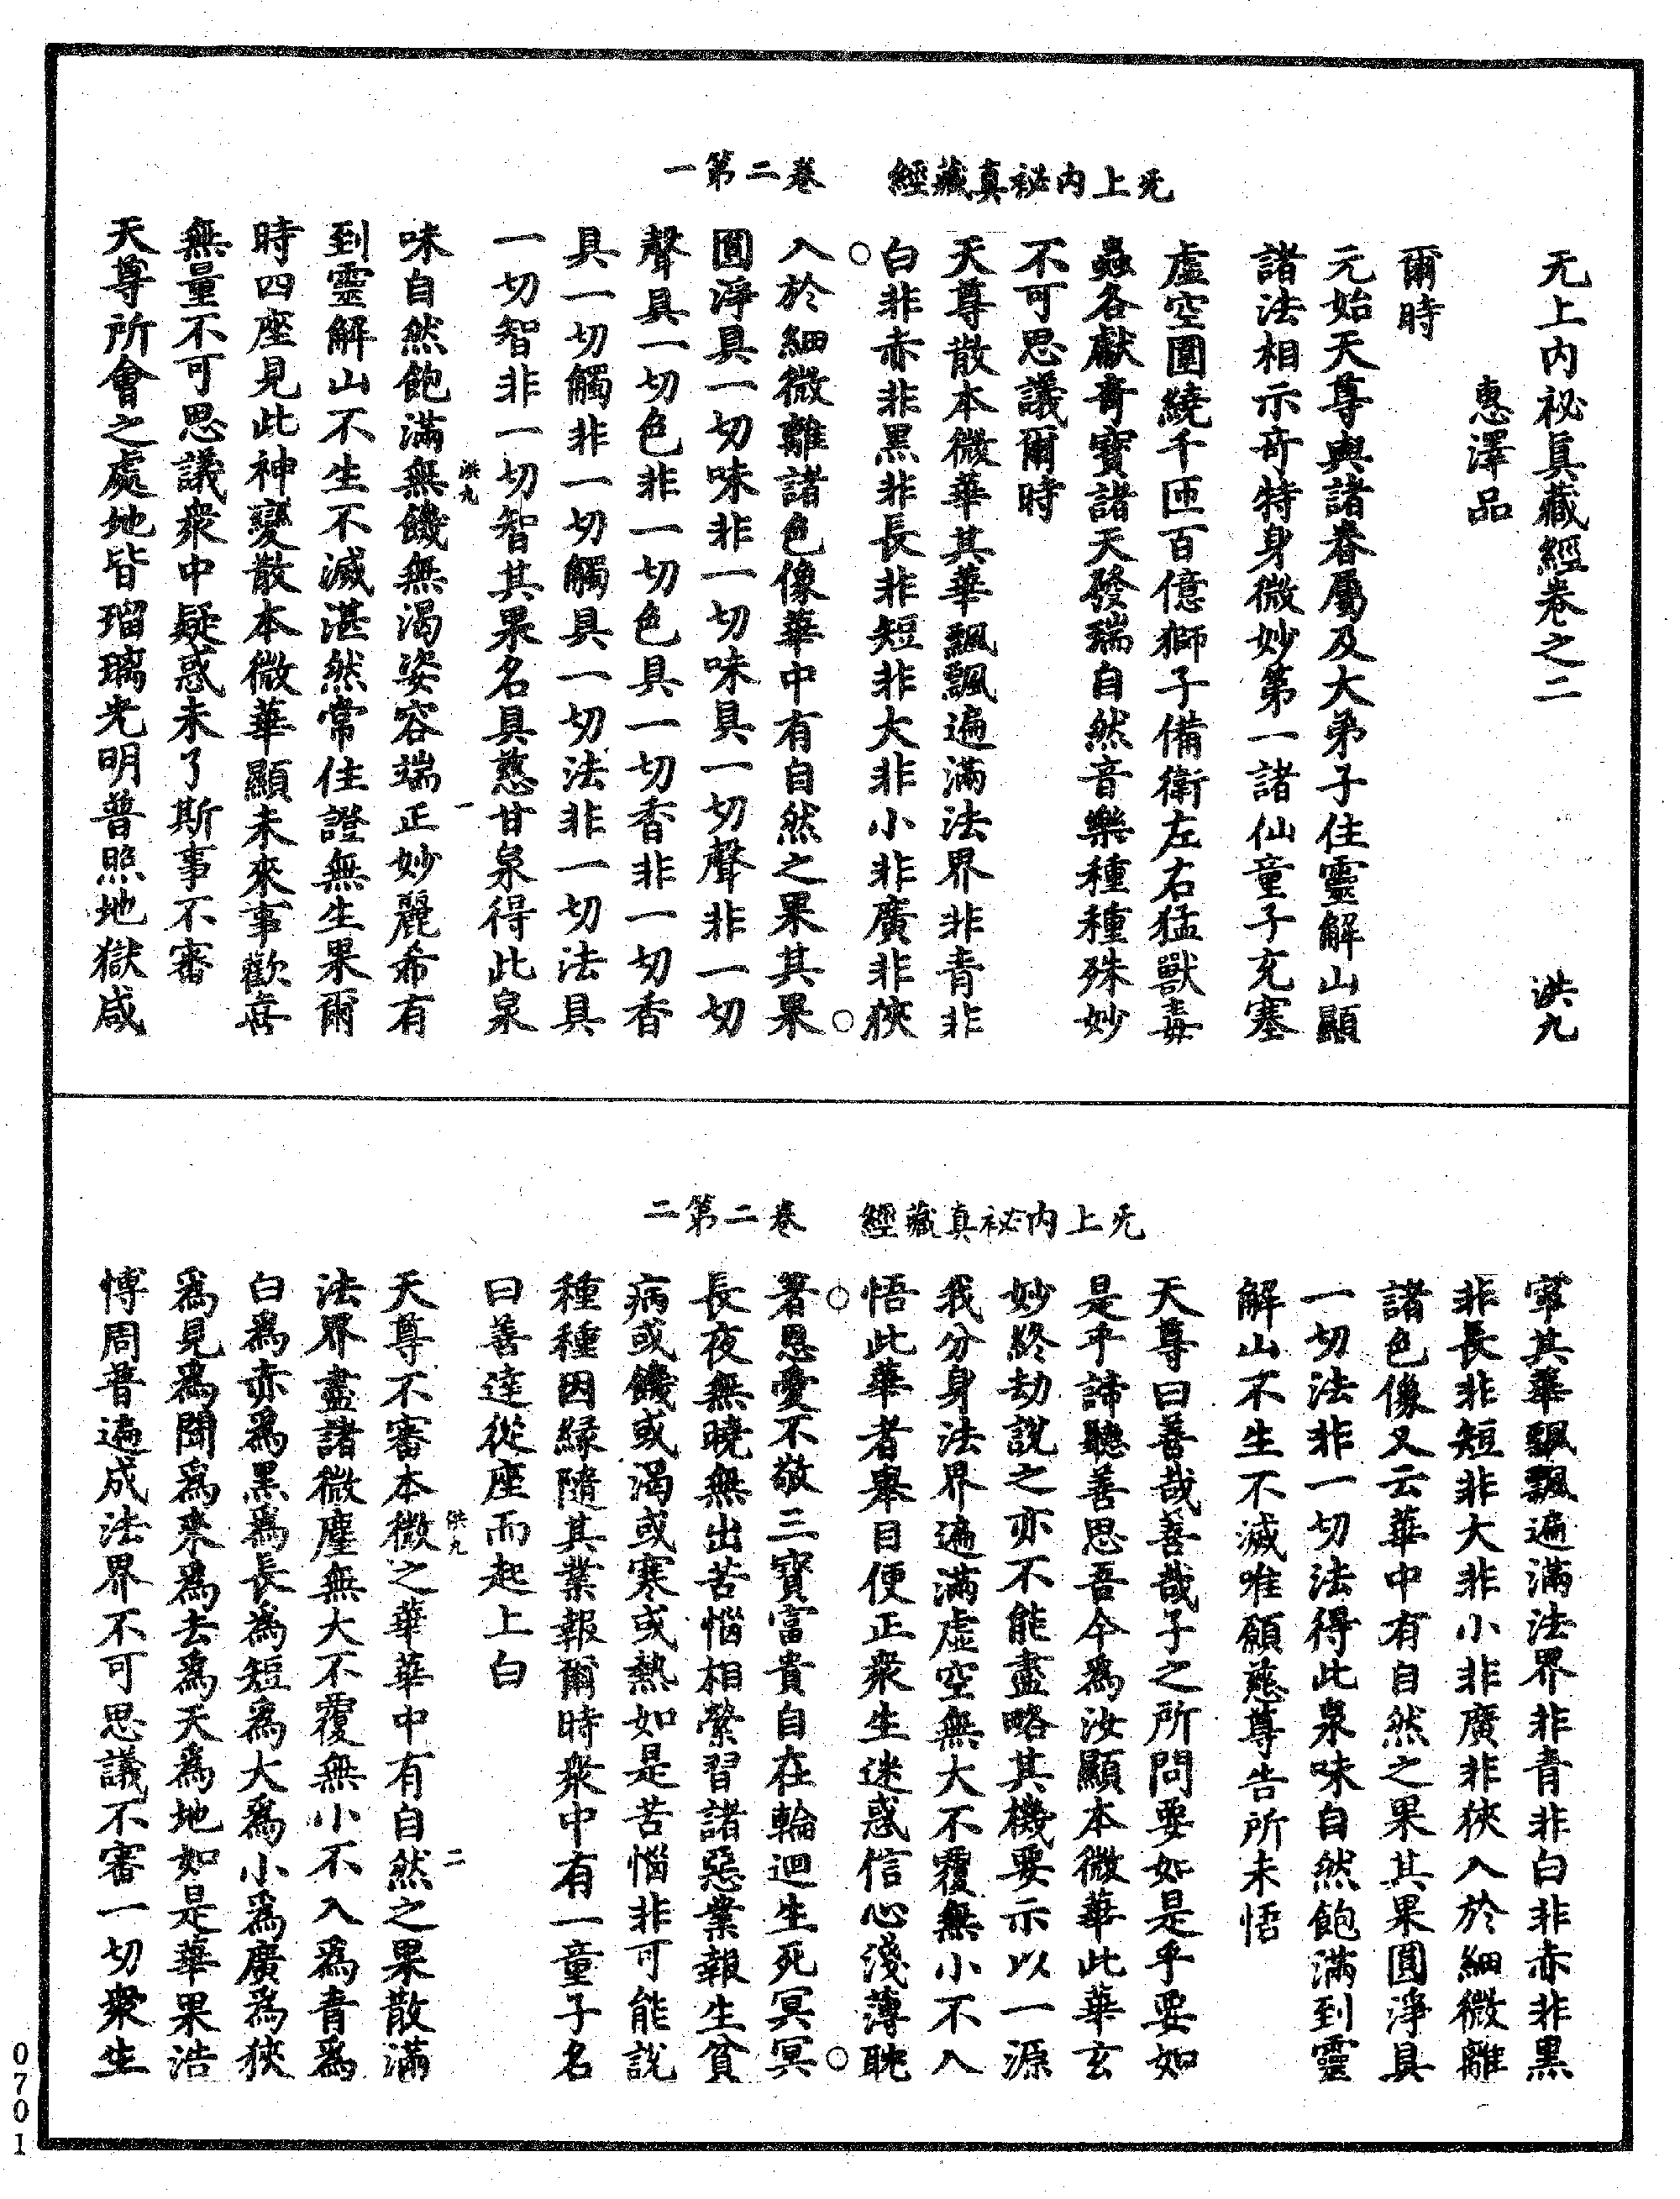 无上內祕真藏經　卷二第一
无上內祕真藏經卷之二　洪九
惠澤品
爾時
元始天尊與諸眷屬及大弟子住靈解山顯
諸法相示奇特身微妙第一諸仙童子充塞
虛空圍繞千匝百億獅子備衛左右猛獸毒
蟲各獻奇寶諸天發瑞自然音樂種種殊妙
不可思議爾時
天尊散本微華其華飄飄遍滿法界非青非
白非赤非黑非長非短非大非小非廣非狹
入於細微離諸色像華中有自然之果其果
圓淨具一切味非一切味具一切聲非一切
聲具一切色非一切色具一切香非一切香
具一切觸非一切觸具一切法非一切法具
一切智非一切智其果名具慈甘泉得此泉
洪九　一
味自然飽滿無饑無渴姿容端正妙麗希有
到靈解山不生不滅湛然常住證無生果爾
時四座見此神變散本微華顯未來事歡喜
無量不可思議衆中疑惑未了斯事不審
天尊所會之處地皆瑠璃光明普照地獄咸
无上內祕真藏經　卷二第二
寧其華飄飄遍滿法界非青非白非赤非黑
非長非短非大非小非廣非狹入於細微離
諸色像又云華中有自然之果其果圓淨具
一切法非一切法得此泉味自然飽滿到靈
解山不生不滅唯願慈尊告所未悟
天尊曰善哉善哉子之所問要如是乎要如
是乎諦聽善思吾今爲汝顯本微華此華玄
妙終劫說之亦不能盡略其機要示以一源
我分身法界遍滿虛空無大不覆無小不入
悟此華者舉目便正衆生迷惑信心淺薄耽
著恩愛不敬三寶富貴自在輪迴生死冥冥
長夜無曉無出苦惱相縈習諸惡業報生貧
病或饑或渴或寒或熱如是苦惱非可能說
種種因緣隨其業報爾時衆中有一童子名
曰善達從座而起上白
洪九　二
天尊不審本微之華華中有自然之果散滿
法界盡諸微塵無大不覆無小不入爲青爲
白爲赤爲黑爲長爲短爲大爲小爲廣爲狹
爲見爲聞爲來爲去爲天爲地如是華果浩
博周普遍成法界不可思議不審一切衆生
0701